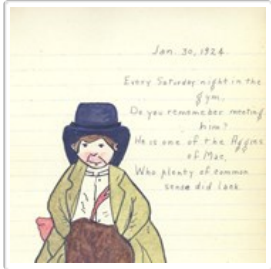 Jan. 30, 1924.
Every Saturday night in the
gym.
Do you remember meeting
him?
He is one of the Aggies
of Mac,
Who plenty of common
sense did lack